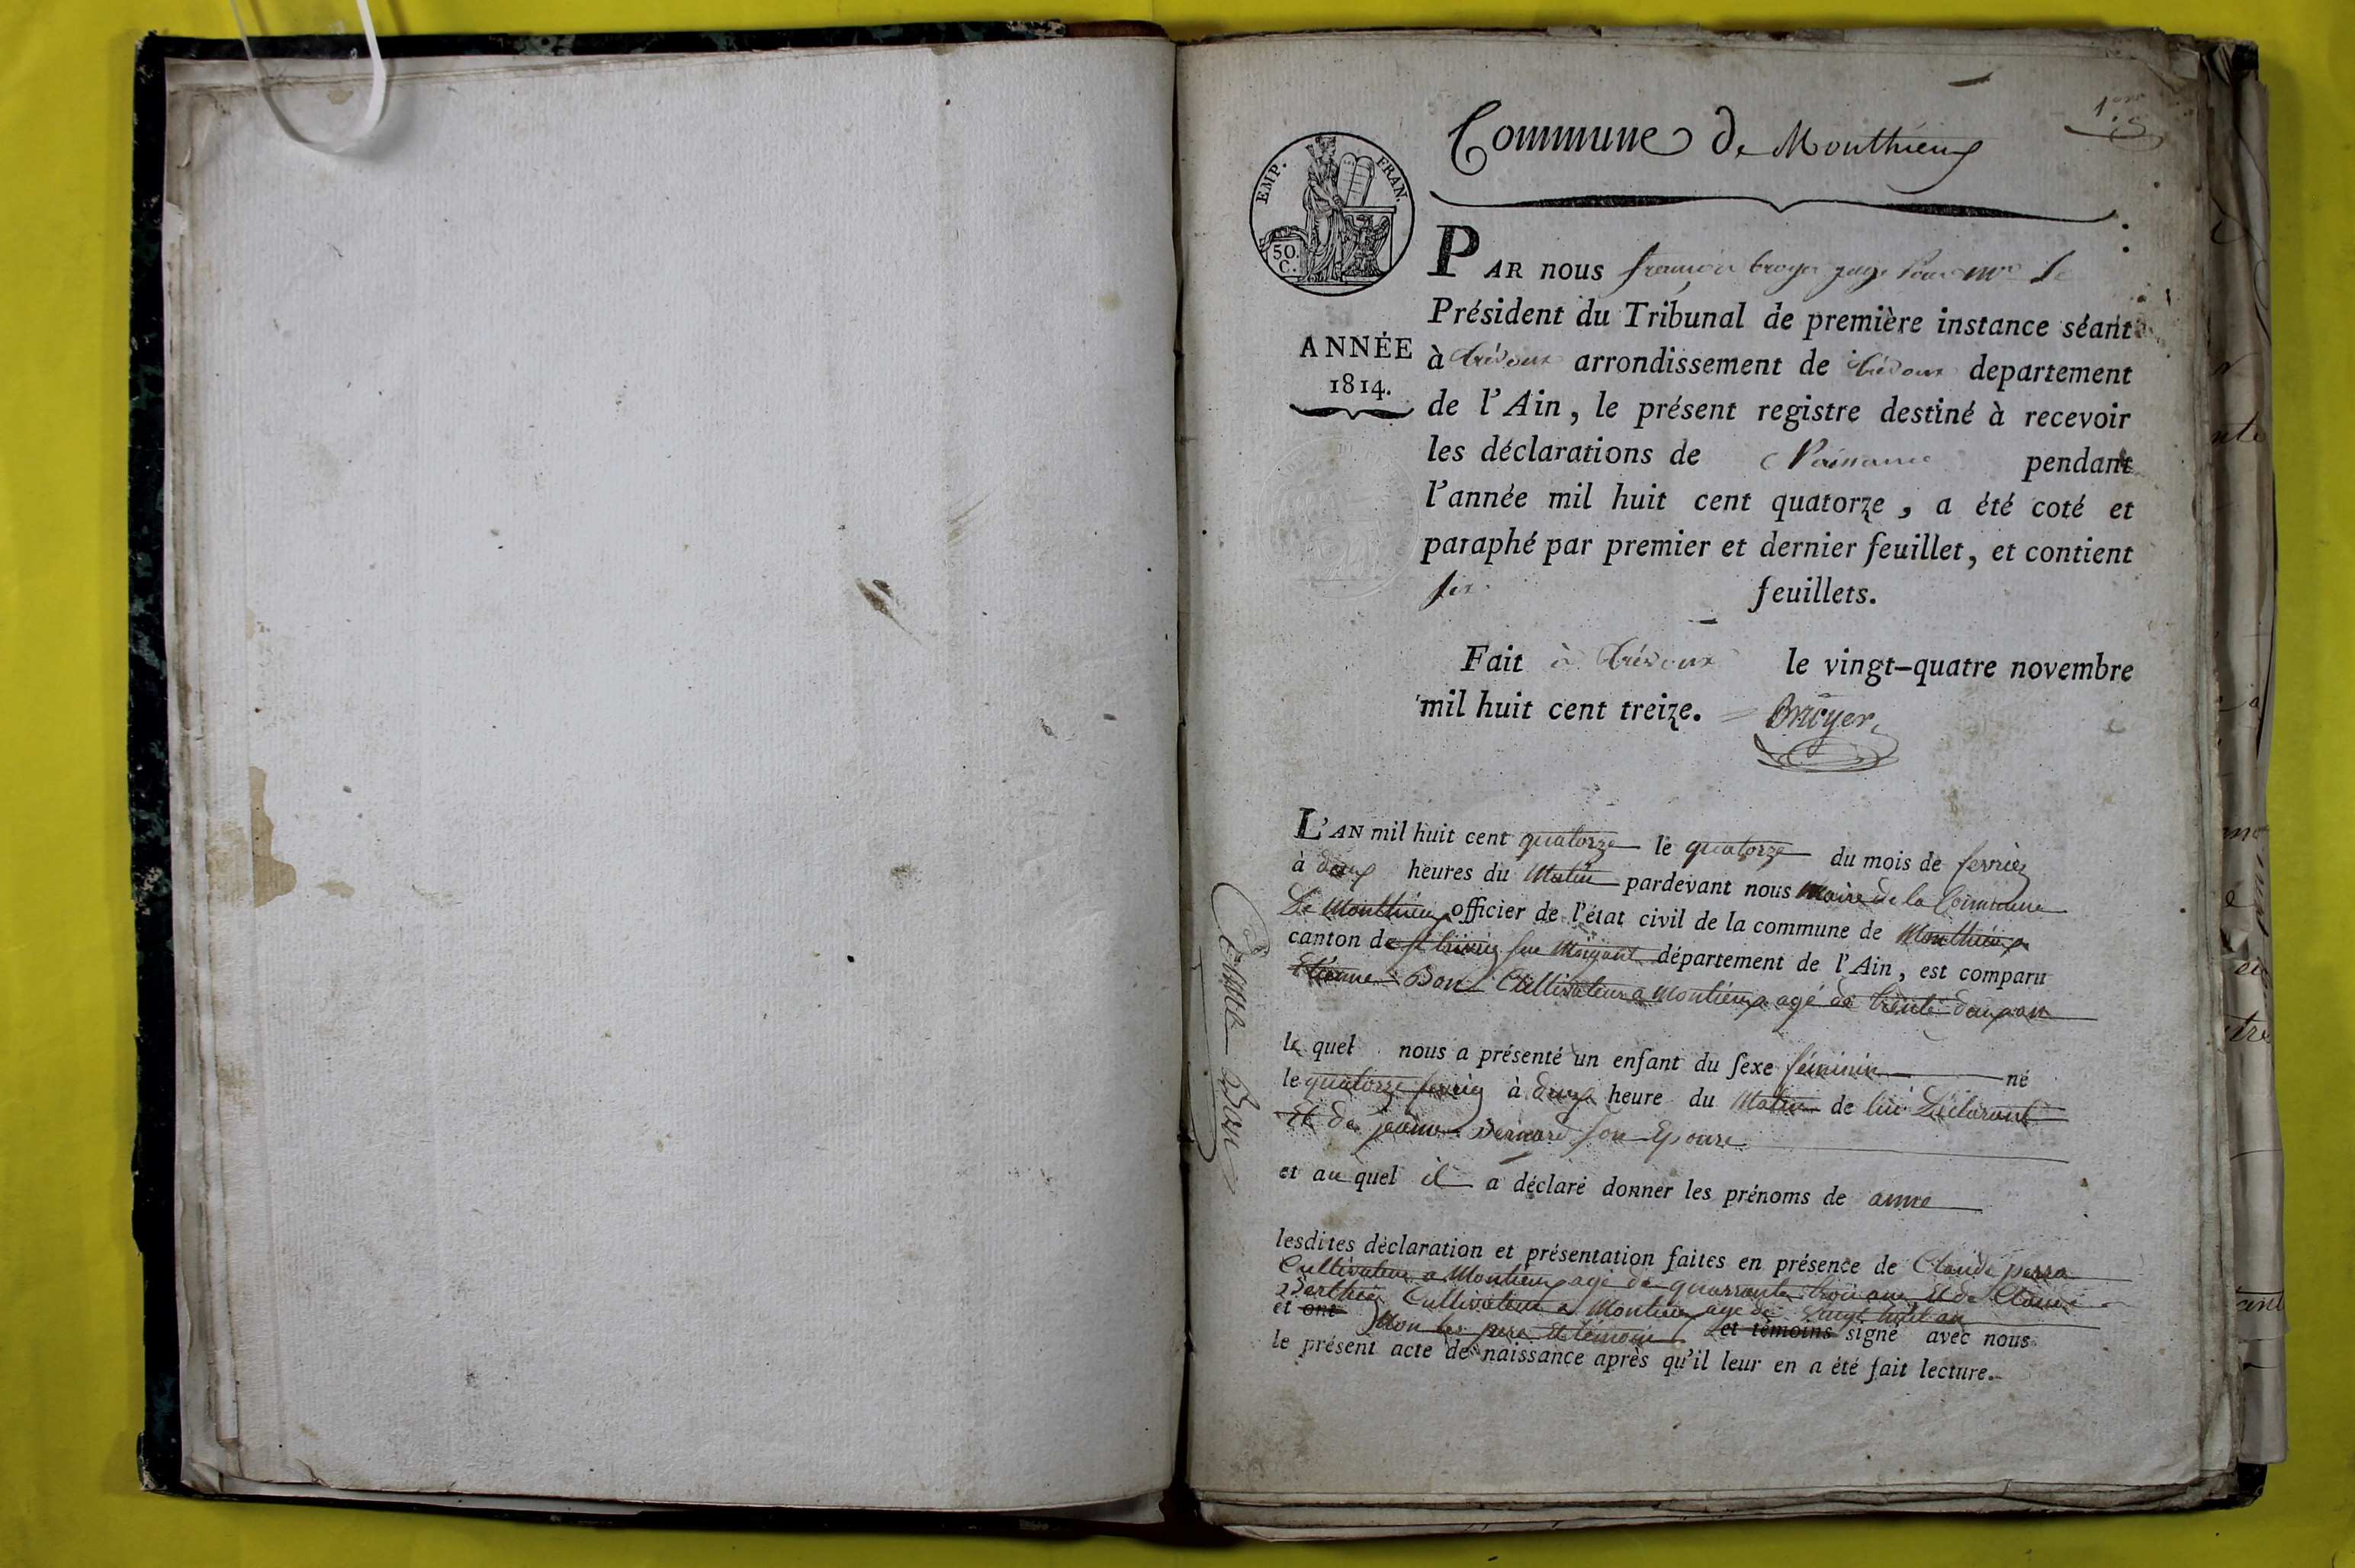 1er
Commune de Monthieux
EMP. FRAN.
50. C.
ANNÉE
1814.
PAR nous françois broyer juge Pour mr Le
Président du Tribunal de première instance séant
à trévoux arrondissement de trévoux departement
de l'Ain, le présent registre destiné à recevoir
les déclarations de Naissance pendant
l'année mil huit cent quatorze, a été coté et
paraphé par premier et dernier feuillet, et contient
six feuillets.
Fait à trévoux le vingt-quatre novembre
mil huit cent treize. Broyer
anne Bon
L'AN mil huit cent quatorze le quatorze du mois de fevrier
à deux heures du Matin pardevant nous Maire de la Commune
De Monthieux officier de l'état civil de la commune de Monthieux
canton de st trivier sur Moignant département de l'Ain, est comparu
Etienne Bon Cultivateur a Montieux agé de trente deux an
le quel nous a présenté un enfant du sexe féminin né
le quatorze fevrier à deux heure du Matin de lui Déclarant
Et de jeanne Bernard son Epouse
et au quel il a déclaré donner les prénoms de anne
lesdites déclaration et présentation faites en présence de Claude perra
Cultivateur a Montieux agé de quarrante trois ans Et de Claude
Berthier Cultivateur a Montieux age de vingt huit an
et ont Non les pere Et témoins et témoins signé avec nous
le présent acte de naissance après qu'il leur en a été fait lecture.